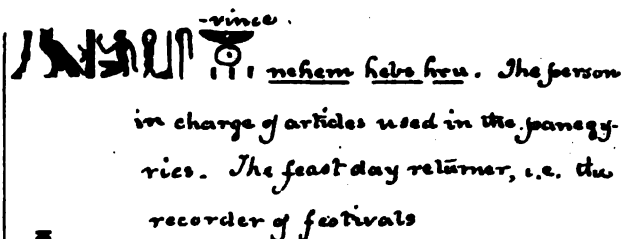 -vince.
nehem hebs hru. The person
in charge of articles used in the panegy-
rics. The feast day returner, i.e. the
recorder of festivals